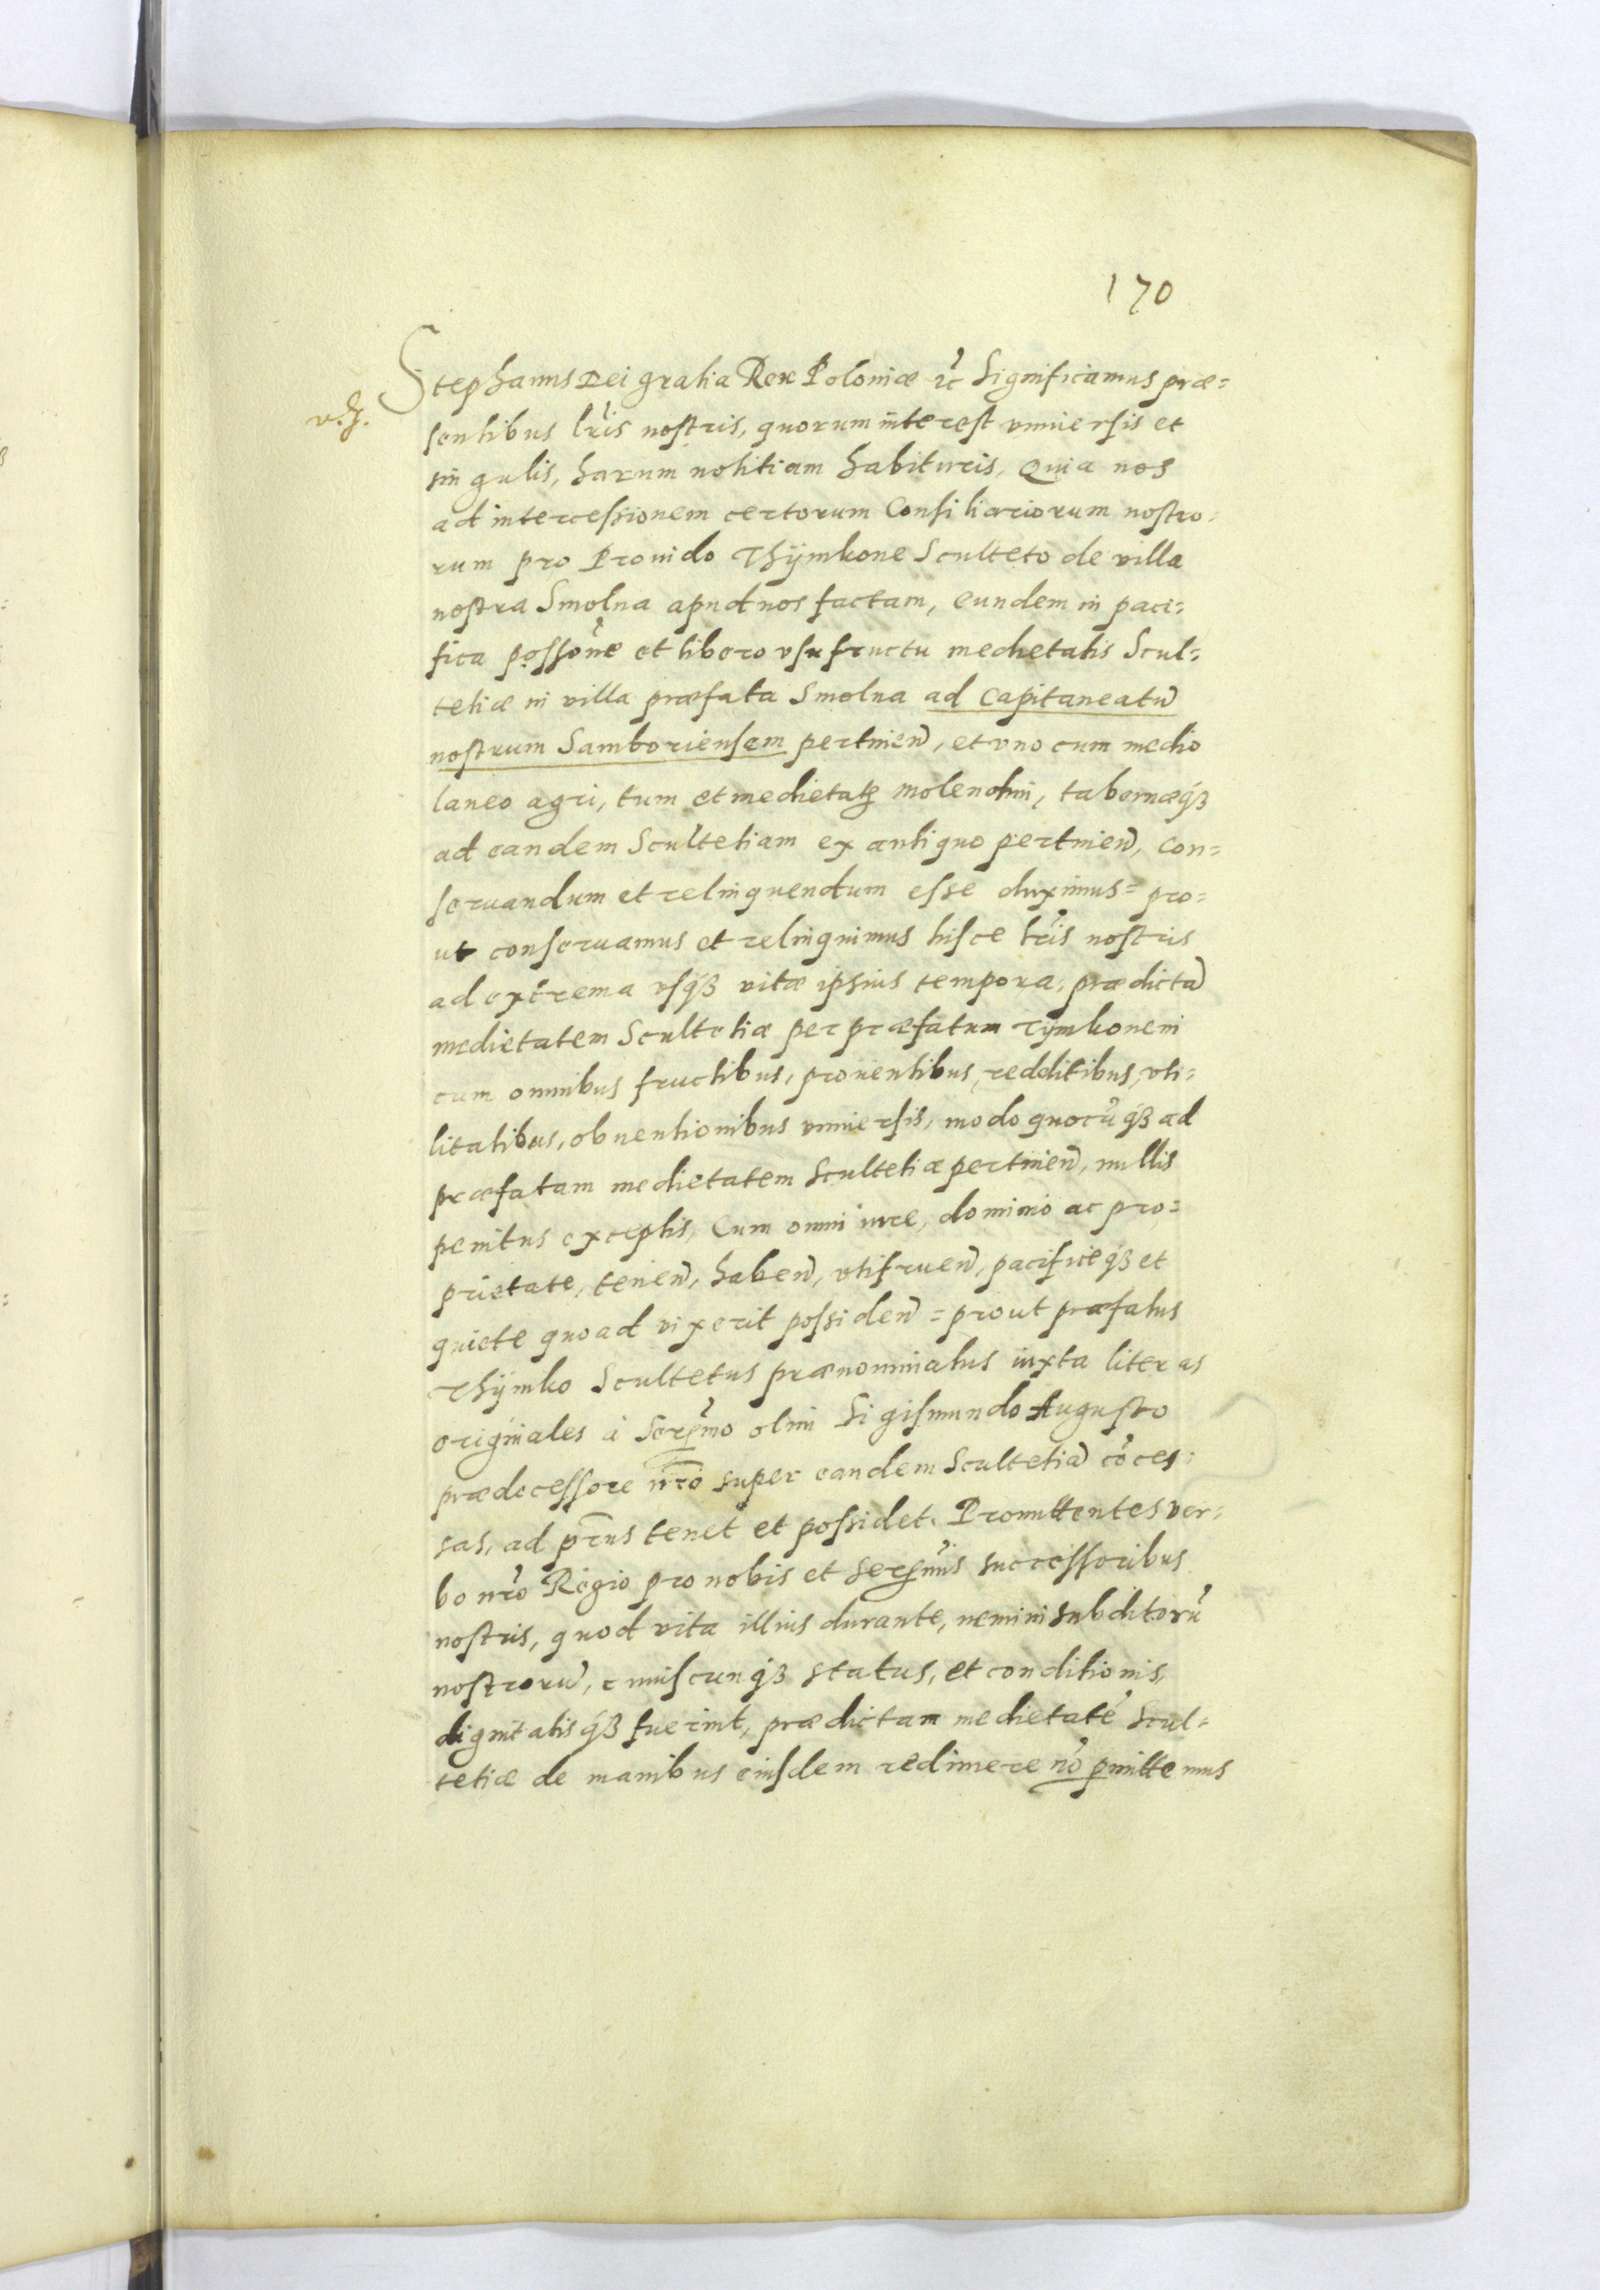 170
v. z.
Stephanus Dei gratia Rex Poloniæ etc̃ Significamus præ=
sentibus lr̃is nostris, quorum interest vniuersis et
singulis, harum notitiam habituris, Quia nos
ad intercessionem certorum Consiliariorum nostro=
rum pro Prouido Thÿmkone Sculteto de villa
nostra Smolna apud nos factam, eundem in paci=
fica possõne et libero vsufructu medietatis Scul=
tetiæ in villa præfata Smolna ad Capitaneatũ
nostrum Samboriensem pertineñ, et vno cum medio
laneo agri, tum et medietatꝫ molendini, tabernæqꝫ
ad eandem Scultetiam ex antiquo pertineñ, con=
seruandum et relinquendum esse duximus= pro=
ut conseruamus et relinquimus hisce lr̃is nostris
ad extrema vsqꝫ vitæ ipsius tempora, prædictã
medietatem Scultetiæ per præfatum Tÿmkonem
cum omnibus fructibus, prouentibus, redditibus, vti=
litatibus, obuentionibus vniuersis, modo quocũqꝫ ad
præfatam medietatem Scultetiæ pertineñ, nullis
penitus exceptis, Cum omni iure, dominio ac pro=
prietate, teneñ, habeñ, vtifrueñ, pacificeqꝫ et
quiete quoad vixerit possideñ = prout præfatus
Thÿmko Scultetus prænominatus iuxta literas
originales à Serẽmo olim Sigismundo Augusto
prædecessore nr̃o super eandem Scultetiã cõces=
sas, ad pr̃ns tenet et possidet. Promittentes ver=
bo nr̃o Regio pro nobis et Serẽmis successoribus
nostris, quod vita illius durante, nemini subditorũ
nostrorũ, cuiuscunqꝫ status, et conditionis,
dignitatisqꝫ fuerint, prædictam medietatẽ Scul=
tetiæ de manibus eiusdem redimere nõ pmittemus